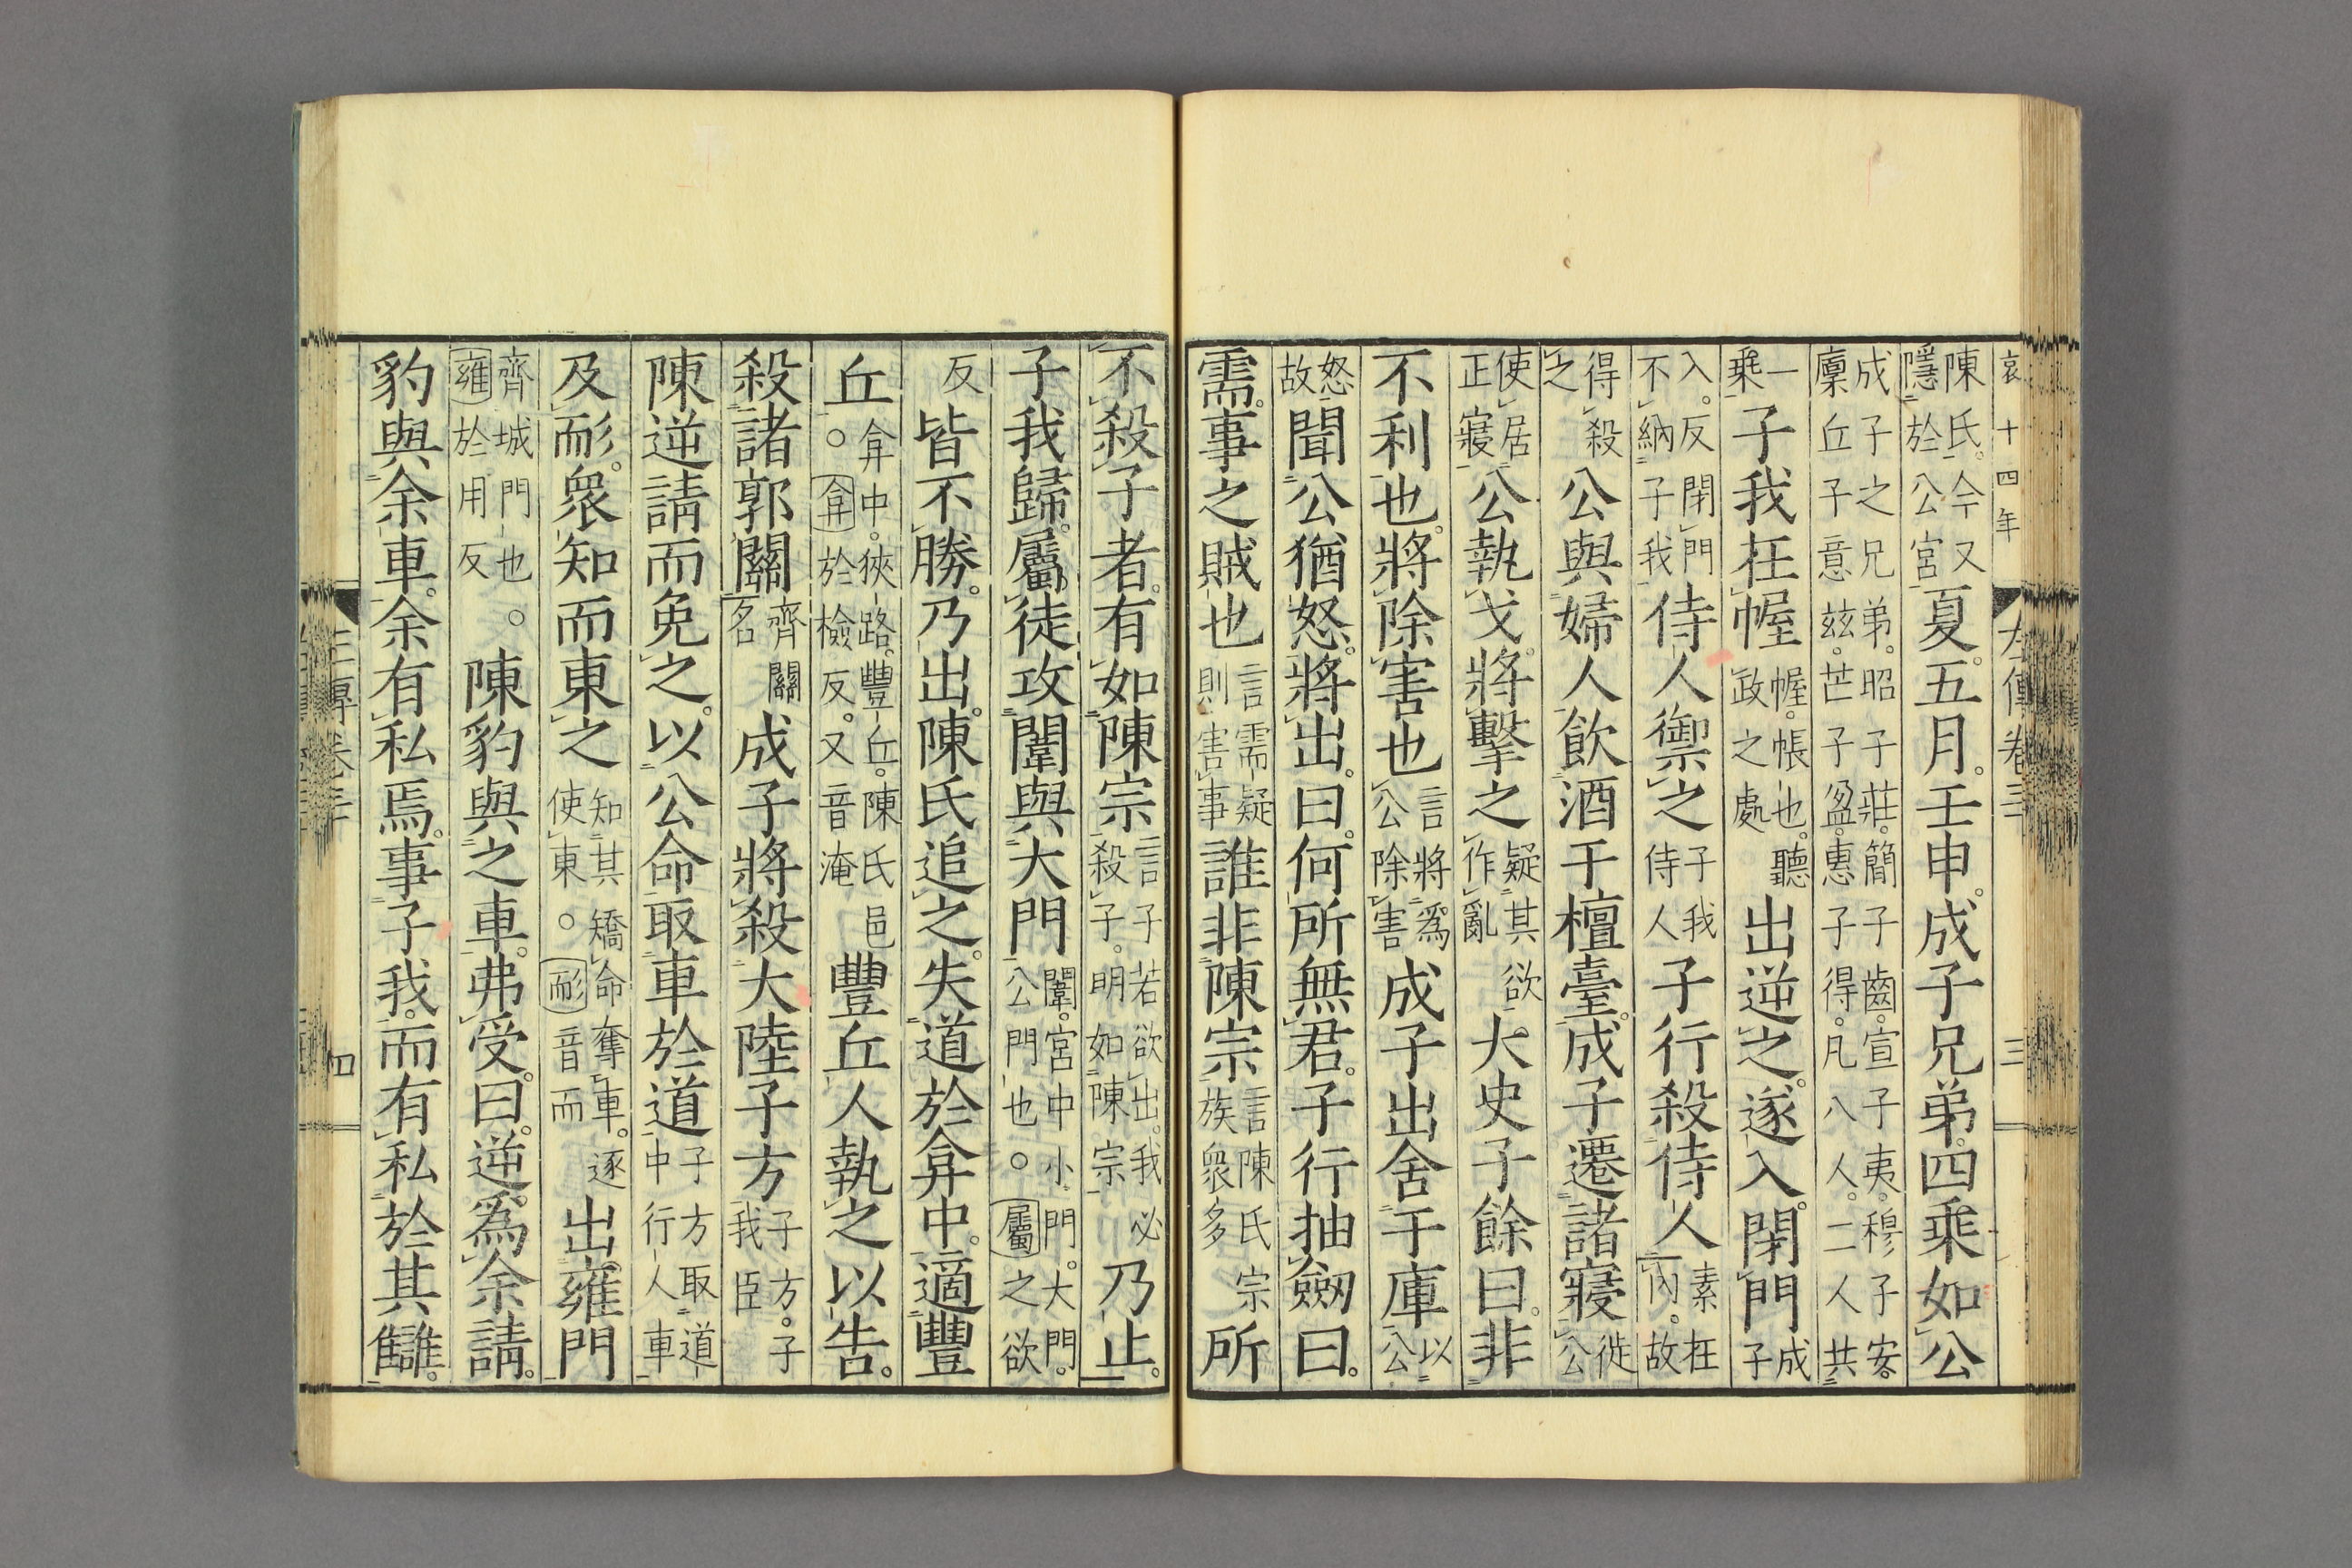 哀十四年 左傳卷三 三
陳氏。今又隱於公宮夏。五月。壬申。成子兄弟四乘如公
成子之兄弟。昭子莊。簡子齒。宣子夷。穆子安。廩丘子意茲。芒子盈。惠子得。凡八人。二人共
一乘子我在幄幄。帳也。聽政之處出逆之。遂入。閉門成子
入。反閉門不納子我侍人禦之子我侍人子行殺侍人素在內。故
得殺之公與婦人飲酒于檀臺。成子遷諸寢徙公
使居正寢公執戈。將擊之疑其欲作亂大史子餘曰。非
不利也。將除害也言將爲公除害成子出舍于庫以公
怒故聞公猶怒。將出。曰。何所無君。子行抽劒曰。
需。事之賊也言需疑則害事誰非陳宗言陳氏宗族衆多所
不殺子者。有如陳宗言子若欲出。我必殺子。明如陳宗乃止。
子我歸。屬徒攻闈與大門闈。宮中小門。大門。公門也。○屬之欲
反皆不勝。乃出。陳氏追之。失道於弇中。適豐
丘弇中。狹路。豐丘。陳氏邑。○弇於檢反。又音淹豐丘人執之以告。
殺諸郭關齊關名成子將殺大陸子方子方。子我臣
陳逆請而免之。以公命取車於道子方取道中行人車
及耏。衆知而東之知其矯命奪車。逐使東。○耏音而出。雍門
齊城門也。○雍於用反陳豹與之車。弗受。曰。逆。爲余請。
豹與余車。余有私焉。事子我。而有私於其讎。
四